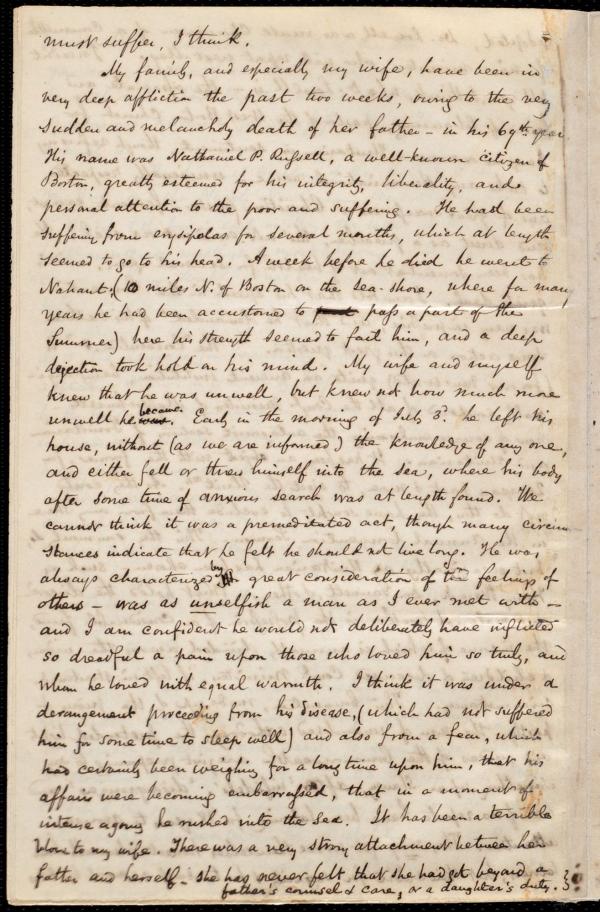 must suffer, I think.
My family, and especially my wife, have been in
very deep affliction the past two weeks, owing to the very
sudden and melancholy death of her father – in his 69th year
His name was Nathaniel P. Russell, a well-known citizen of
Boston, greatly esteemed for his integrity, liberality, and
personal attention to the poor and suffering. He had been
suffering from erysipelas for several months, which at length
seemed to go to his head. A week before he died he went to
Nahant, (10 miles N. of Boston on the sea-shore, where for many
years he had been accustomed to pass a part of the
Summer) here his strength seemed to fail him, and a deep
dejection took hold on his mind. My wife and myself
knew that he was unwell, but knew not how much more
unwell he became. Early in the morning of July 3d. he left his
house, without (as we are informed) the knowledge of any one,
and either fell or threw himself into the sea, where his body
after some time of anxious search was at length found. We
cannot think it was a premeditated act, though many circum
stances indicate that he felt he should not live long. He was
always characterized by great consideration of the feelings of
others – was as unselfish a man as I ever met with –
and I am confident he would not deliberately have inflicted
so dreadful a pain upon those who loved him so truly, and
whom he loved with equal warmth. I think it was under a
derangement proceeding from his disease, (which had not suffered
him for some time to sleep well) and also from a fear, which
had certainly been weighing for a long time upon him, that his
affairs were becoming embarrassed, that in a moment of
intense agony he rushed into the Sea. It has been a terrible
blow to my wife. There was a very strong attachment between her
father and herself – she has never felt that she had got beyond a
father's counsel & care, or a daughter's duty.